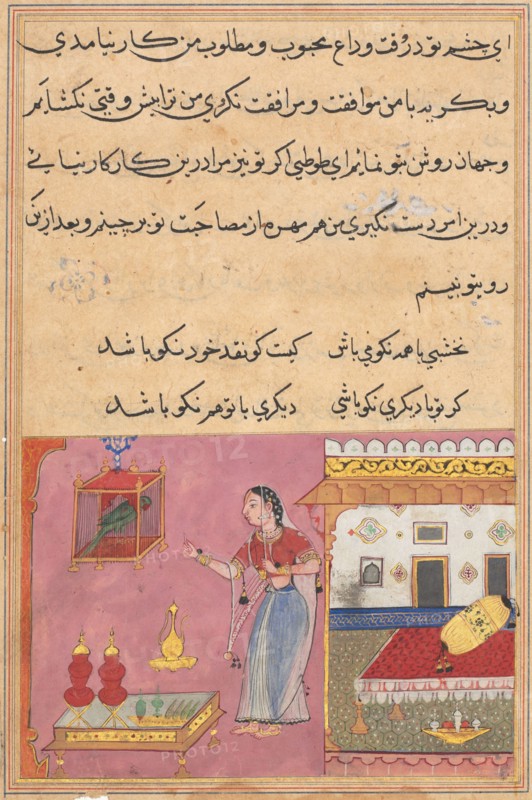 ای چشم تو در وقت وداع محبوب و مطلوب من کار نیامدی
و بکریه با من موافقت و مرافقت نکردی من ترا پیش وقتی نکشایم
و جهان روشن بتو ننمایم ای طوطی اکر تو نیز مرا درین کار کار نیائی
و درین امر دست نکیری من هم مهره از مصاحبت تو برچینم و بعد ازین
روی تو نبینم
نخشبی با همه نکو می باش کیت کو نقد خود نکو باشد
کر تو با دیکری نکو باشی دیکری با تو هم نکو باشد
PHOTO12
PHOTO12
PHOTO12